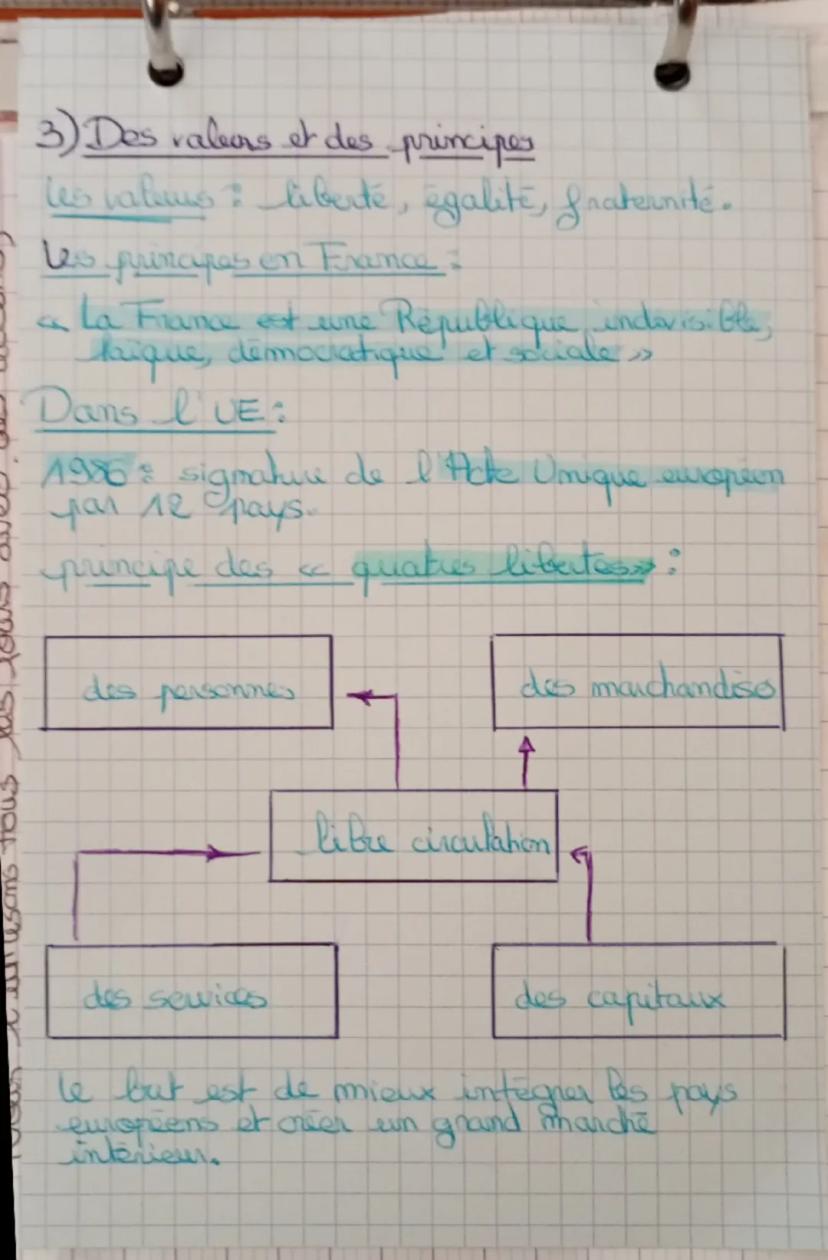 3) Des valeurs et des principes
Les valeurs : liberté, égalité, fraternité.
Les principes en France :
« La France est une République indivisible,
laïque, démocratique et sociale »
Dans l'UE :
1986 : signature de l'Acte Unique européen
par 12 pays.
principe des « quatres libertés » :
des personnes
des marchandises
libre circulation
des services
des capitaux
le but est de mieux intégrer les pays
européens et créer un grand marché
intérieur.